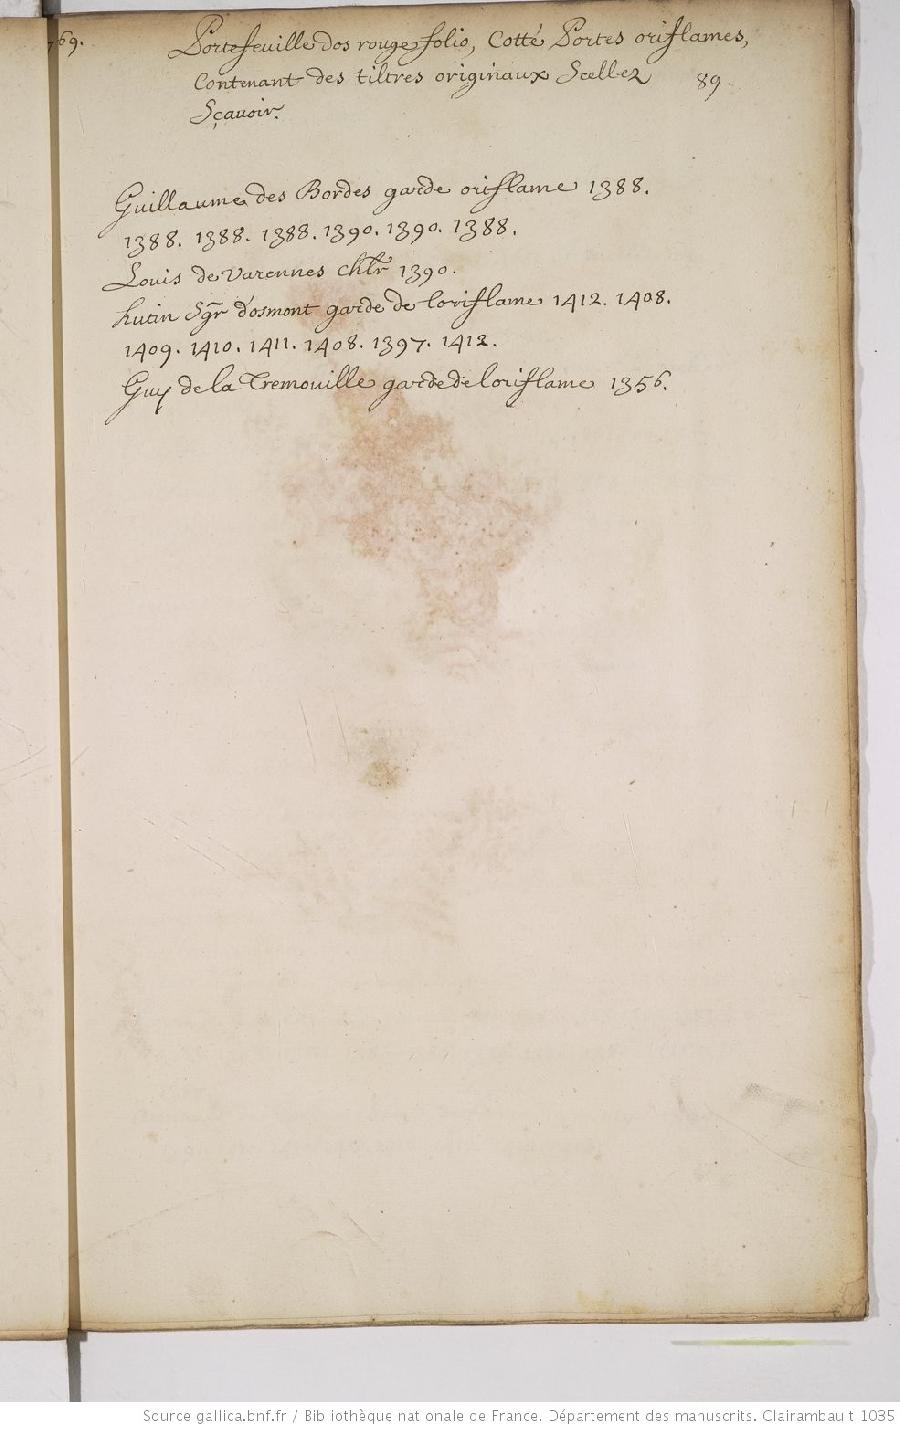 769.
Portefeuille dos rouge folio, Cotté Portes oriflames,
Contenant des tiltres originaux Scellez
89
Sçavoir.
Guillaume des Bordes garde oriflame 1388.
1388. 1388. 1388. 1390. 1390. 1388.
Louis de Varennes chlr 1390.
hutin Sgr d'osmont garde de loriflame 1412. 1408.
1409. 1410. 1411. 1408. 1397. 1412.
Guy de la Tremouille garde de loriflame 1356.
Source gallica.bnf.fr / Bibliothèque nationale de France. Département des manuscrits. Clairambault 1035